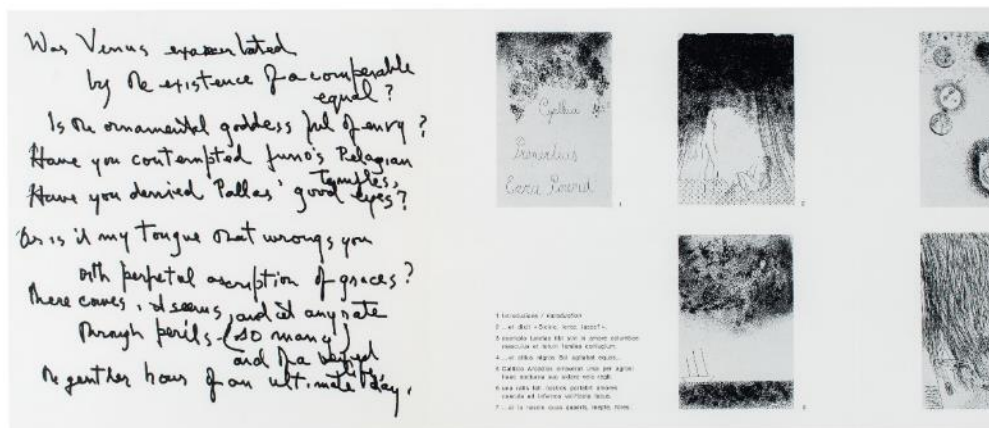 Was Venus exacerbated
by the existence of a comparable
equal?
Is the ornamental goddess ful of envy?
Have you contempted Juno's Pelagian
temples,
Have you denied Pallas' good eyes?
Or is it my tongue that wrongs you
with perpetal ascription of graces?
There comes, it seems, and at any rate
through perils, (so many)
and of a vexed
life,
The gentler hour of an ultimate day.
Cynthia
Propertius
Ezra Pound
1
2
1 Introduzione / Introduction
2 ...et dicit
3 exemplo iunctae tibi sint in amore columbae
masculus et totum femina coniugium.
4 ...et
5 Callisto Arcadios erraverat ursa per agros:
haec nocturna suo sidere vela regit.
6 una ratis fati nostros portabit amores
caerula ad infernos velificata lacus.
7